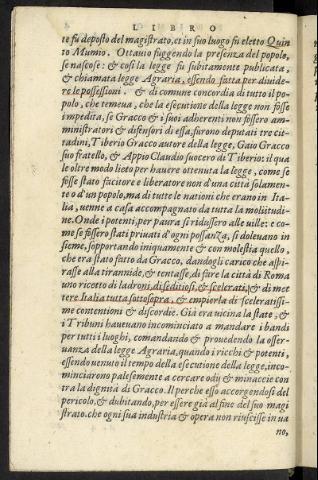 LIBRO
te fu deposto del magistrato, et in suo luogo fu eletto Quin
to Mumio. Ottauio fuggendo la presenza del popolo,
se nascose: & cosi la legge fu subitamente publicata,
& chiamata legge Agraria, essendo fatta per diuide-
re le possessioni. & di comune concordia di tutto il po-
polo, che temeua, che la esecutione della legge non fosse
impedita, se Gracco & i suoi adherenti non fossero am-
ministratori & difensori di essa, furono deputati tre cit-
tadini, Tiberio Gracco autore della legge, Gaio Gracco
suo fratello, & Appio Claudio suocero di Tiberio: il qua
le oltre modo lieto per hauere ottenuta la legge, come se
fosse stato fattore e liberatore non d'una città solamen-
te o d'un popolo, ma di tutte le nationi che erano in Ita-
lia, uenne a casa accompagnato da tutta la moltitudi-
ne. Onde i potenti, per paura si ridussero alle uille: e co-
me se fossero stati priuati d'ogni possanza, si doleuano in
sieme, sopportando iniquamente & con molestia quello,
che era stato fatto da Gracco, dandogli carico che aspi-
rasse alla tirannide, & tentasse, di fare la città di Roma
uno ricetto di ladroni, di seditiosi, & scelerati, & di met
tere Italia tutta sottosopra, & empierla di sceleratissi-
me contentioni & discordie. Già era uicina la state, &
i Tribuni haueuano incominciato a mandare i bandi
per tutti i luoghi, comandando & prouedendo la osser-
uanza della legge Agraria, quando i ricchi & potenti,
essendo uenuto il tempo della esecutione della legge, inco-
minciarono palesemente a cercare odij & minaccie con
tra la dignità di Gracco. Il perche esso accorgendosi del
pericolo, & dubitando, per essere già al fine del suo magi
strato, che ogni sua industria & opera non riuscisse in ua
no,